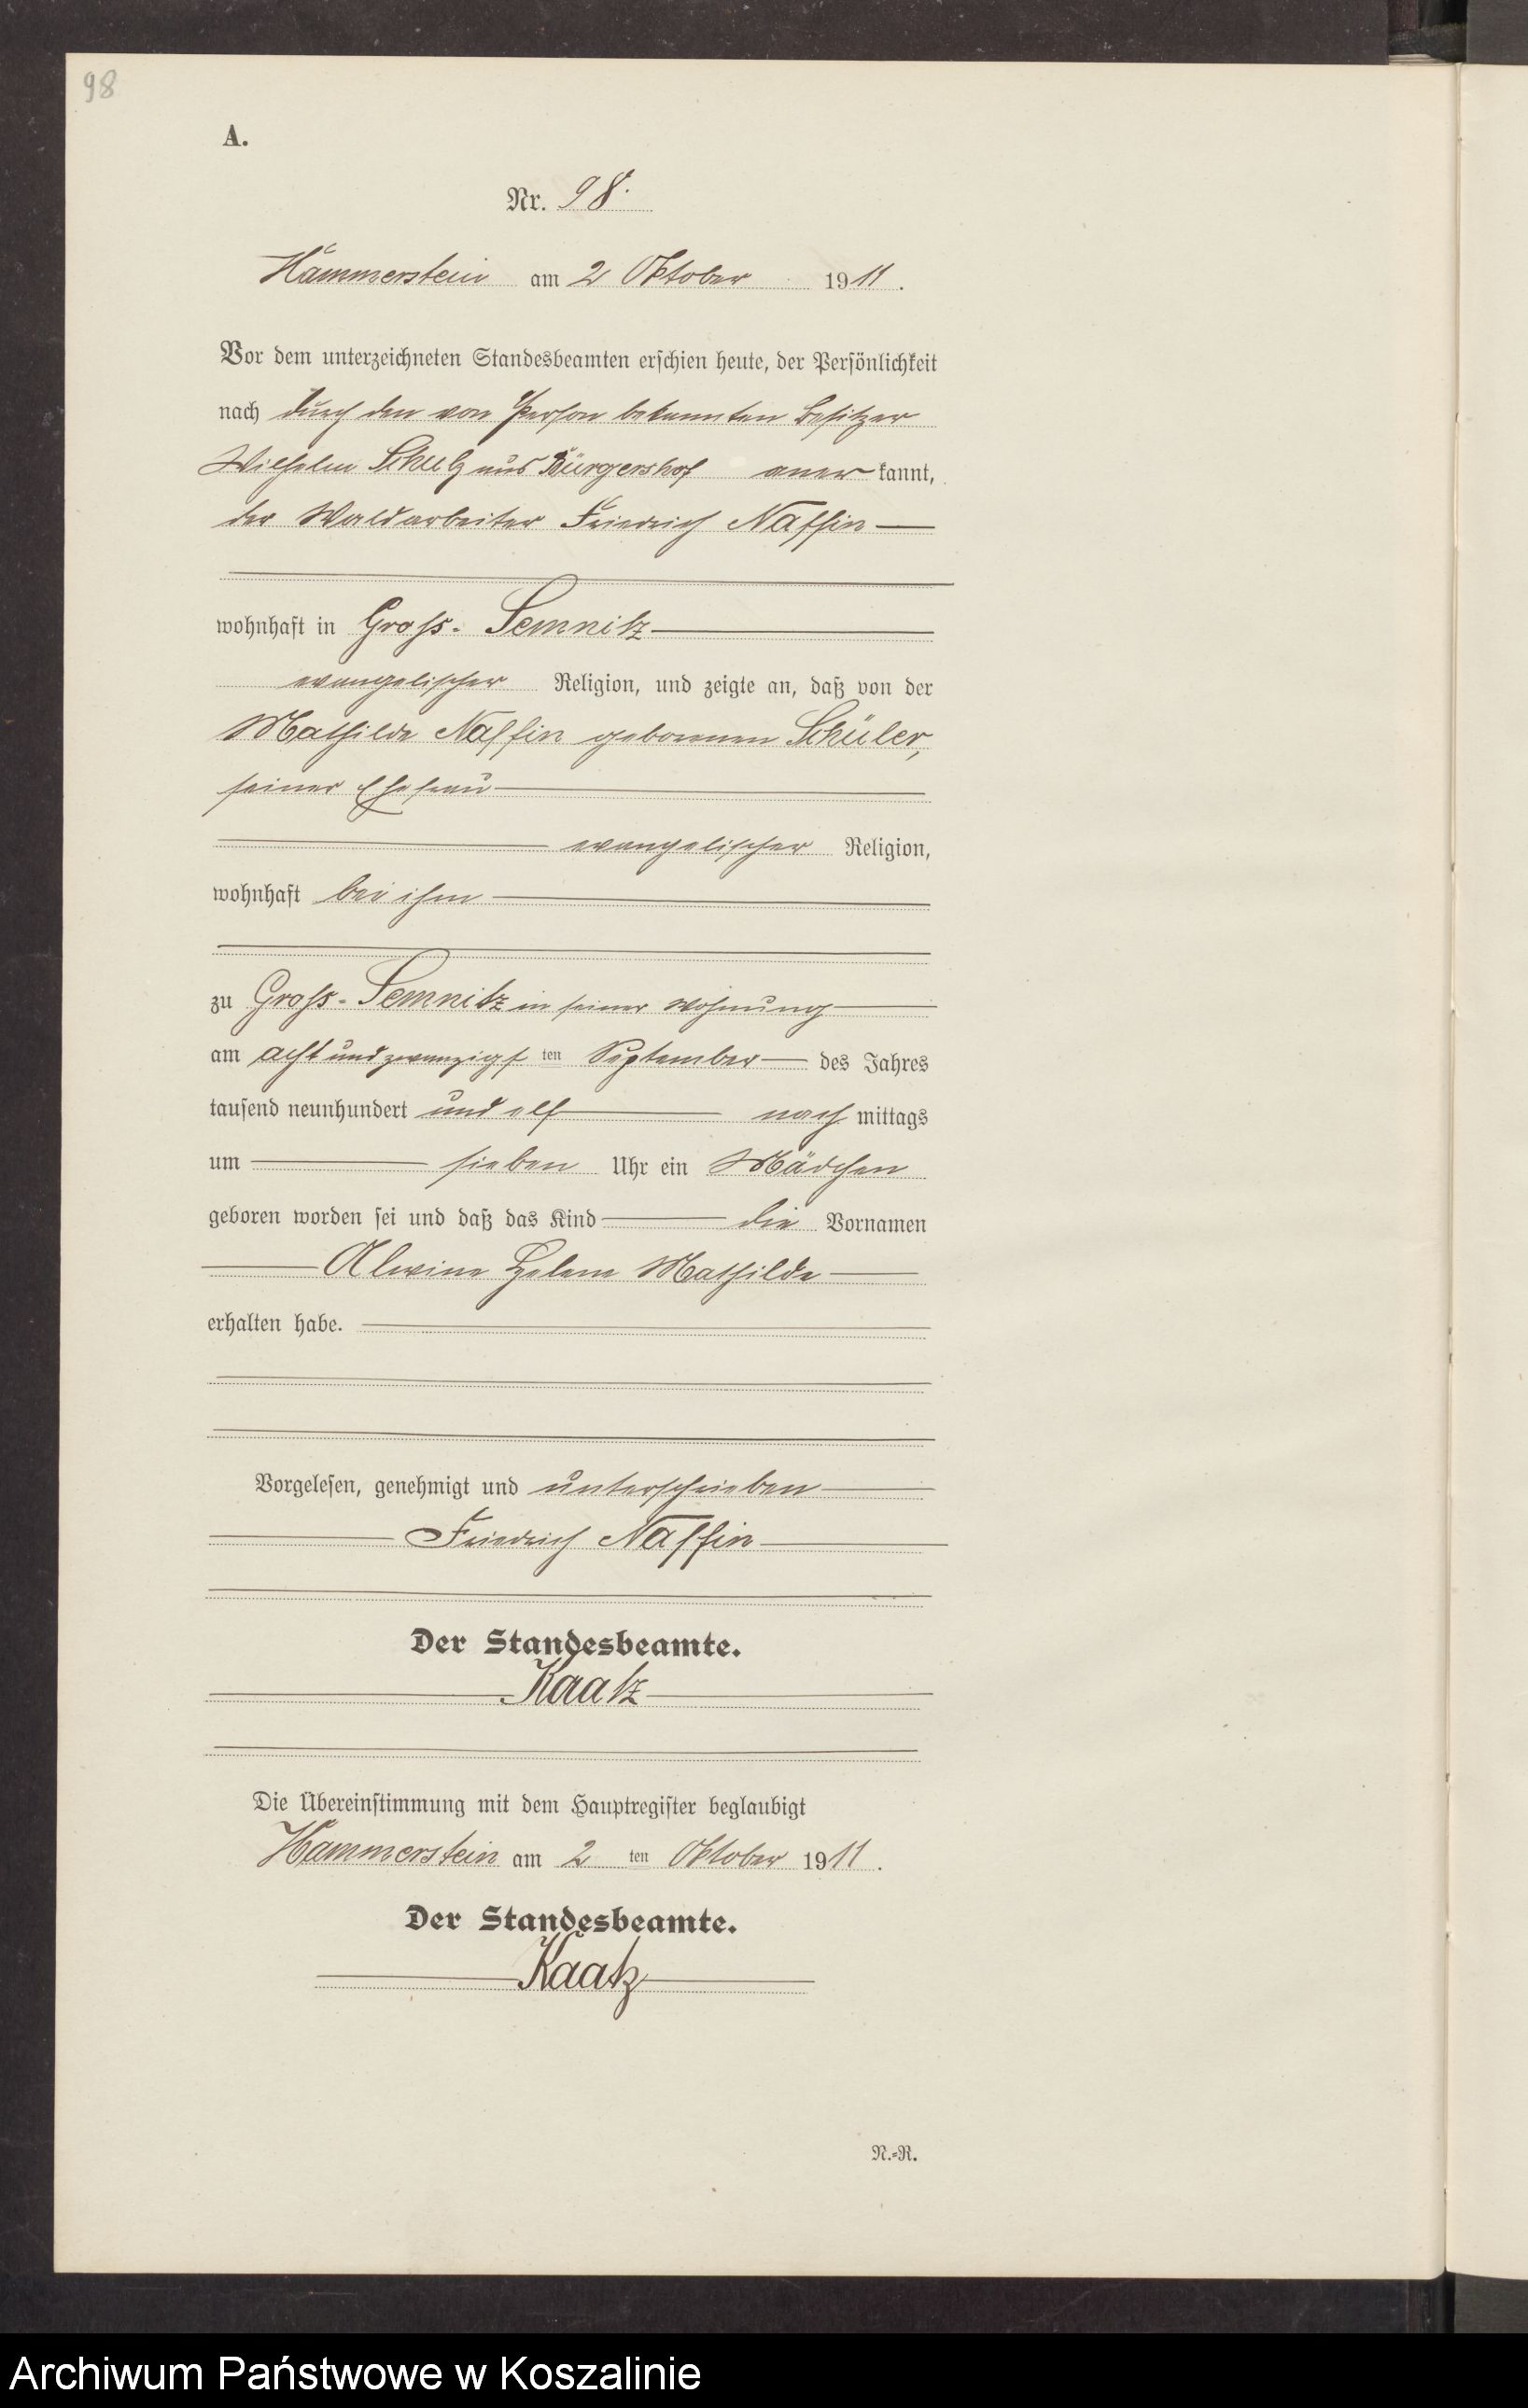 98
A.
Nr. 98.
Hammerstein am 2 Oktober 1911.
Vor dem unterzeichneten Standesbeamten erschien heute, der Persönlichkeit
nach durch den von Person bekannten Besitzer
Wilhelm Schulz aus Bürgershof anerkannt,
der Waldarbeiter Friedrich Naffin
wohnhaft in Groß-Semnitz
evangelischer Religion, und zeigte an, daß von der
Mathilde Naffin geborenen Schüler,
seiner Ehefrau
evangelischer Religion,
wohnhaft bei ihm
zu Groß-Semnitz in seiner Wohnung
am acht und zwanzigsten September des Jahres
tausend neunhundert und elf nachmittags
um sieben Uhr ein Mädchen
geboren worden sei und daß das Kind die Vornamen
Alwine Helene Mathilde
erhalten habe.
Vorgelesen, genehmigt und unterschrieben
Friedrich Naffin
Der Standesbeamte.
Kaatz
Die Übereinstimmung mit dem Hauptregister beglaubigt
Hammerstein am 2 ten Oktober 1911.
Der Standesbeamte.
Kaatz
N.=R.
Archiwum Państwowe w Koszalinie